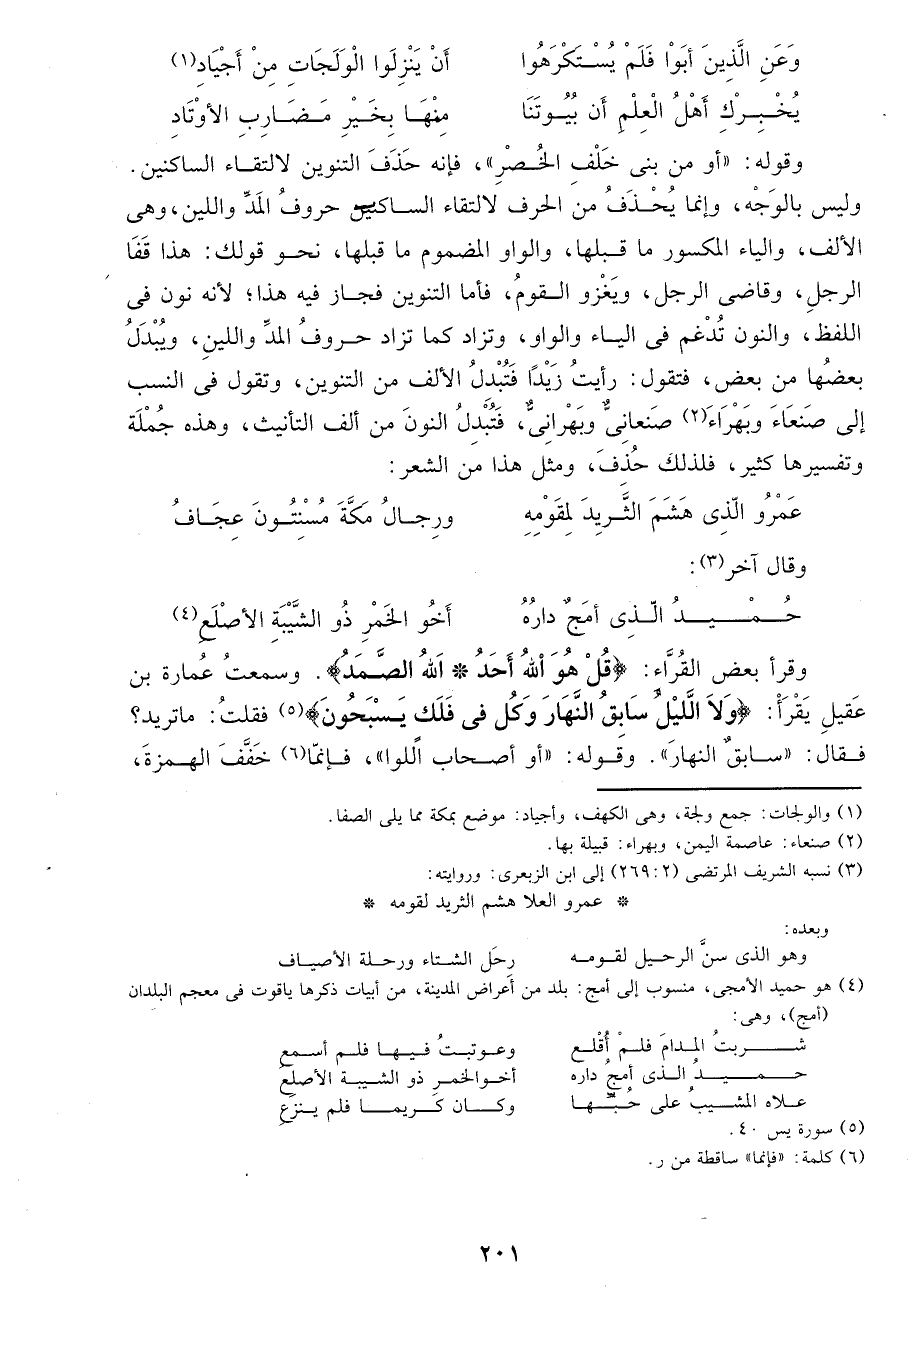 وَعَنِ الَّذِينَ أبَوْا فَلَمْ يُسْتكْرَهُوا أَنْ يَنْزِلُوا الْوَلَجَاتِ مِنْ أَجْيَادِ(١)
يُخْبِرْكَ أَهْلُ الْعِلْمِ أن بُيُوتَنَا مِنْهَا بِخَيْرِ مَضَارِبِ الأوْتَادِ
وقوله: «أو من بنى خَلْفِ الخُضْرِ»، فإنه حَذَفَ التنوين لالتقاء الساكنين.
وليس بالوَجْه، وإنما يُحْذَفُ من الحرف لالتقاء الساكنين حروفُ المَدِّ واللين، وهى
الألف، والياء المكسور ما قبلها، والواو المضموم ما قبلها، نحو قولك: هذا قَفَا
الرجلِ، وقاضى الرجل، ويَغْزو القومُ، فأما التنوين فجاز فيه هذا؛ لأنه نون فى
اللفظ، والنون تُدْغم فى الياء والواو، وتزاد كما تزاد حروفُ المدِّ واللين، ويُبْدَلُ
بعضُها من بعض، فتقول: رأيتُ زَيْدًا فَتُبْدلُ الألف من التنوين، وتقول فى النسب
إلى صَنْعَاءَ وبَهْرَاءَ(٢) صَنعانىٌّ وبَهْرانىٌّ، فَتُبْدلُ النونَ من ألف التأنيث، وهذه جُمْلة
وتفسيرها كثير، فلذلك حُذفَ، ومثل هذا من الشعر:
عَمْرُو الّذِى هَشَمَ الثَّرِيدَ لِقَوْمِهِ ورجالُ مكَّةَ مُسْنِتُونَ عِجَافُ
وقال آخر(٣):
حُمَيْدُ الّذى أمَجٌ دارُهُ أَخُو الخَمْرِ ذُو الشَّيْبَةِ الأصْلَعِ(٤)
وقرأ بعض القُرَّاء: ﴿قُلْ هُوَ اللّهُ أَحَدُ * اللّهُ الصَّمَدُ﴾. وسمعتُ عُمارة بن
عقيلٍ يَقْرَأ: ﴿وَلاَ اللَّيْلُ سَابِقُ النَّهَارَ وَكُلٌّ فِى فَلَكٍ يَسْبَحُونَ﴾(٥) فقلتُ: ماتريد؟
فقال: «سابقٌ النهارَ». وقوله: «أو أصحاب اللوا»، فإنمّا(٦) خَفَّفَ الهمزةَ،
(١) والولجات: جمع ولجة، وهى الكهف، وأجياد: موضع بمكة مما يلى الصفا.
(٢) صنعاء: عاصمة اليمن، وبهراء: قبيلة بها.
(٣) نسبه الشريف المرتضى (٢: ٢٦٩) إلى ابن الزبعرى: وروايته:
* عمرو العلا هشم الثريد لقومه *
وبعده:
وهو الذى سنَّ الرحيل لقومه رِحَل الشتاء ورحلة الأصياف
(٤) هو حميد الأمجى، منسوب إلى أمج: بلد من أعراض المدينة، من أبيات ذكرها ياقوت فى معجم البلدان
(أمج)، وهى:
شربتُ المدامَ فلمْ أُقْلِع وعوتبتُ فيها فلم أسمع
حميدُ الذى أمجُ داره أخوالخمرِ ذو الشيبة الأصلَع
علاه المشيبُ على حُبِّها وكان كريما فلم ينزَع
(٥) سورة يس ٤٠.
(٦) كلمة: «فإنما» ساقطة من ر.
٢٠١